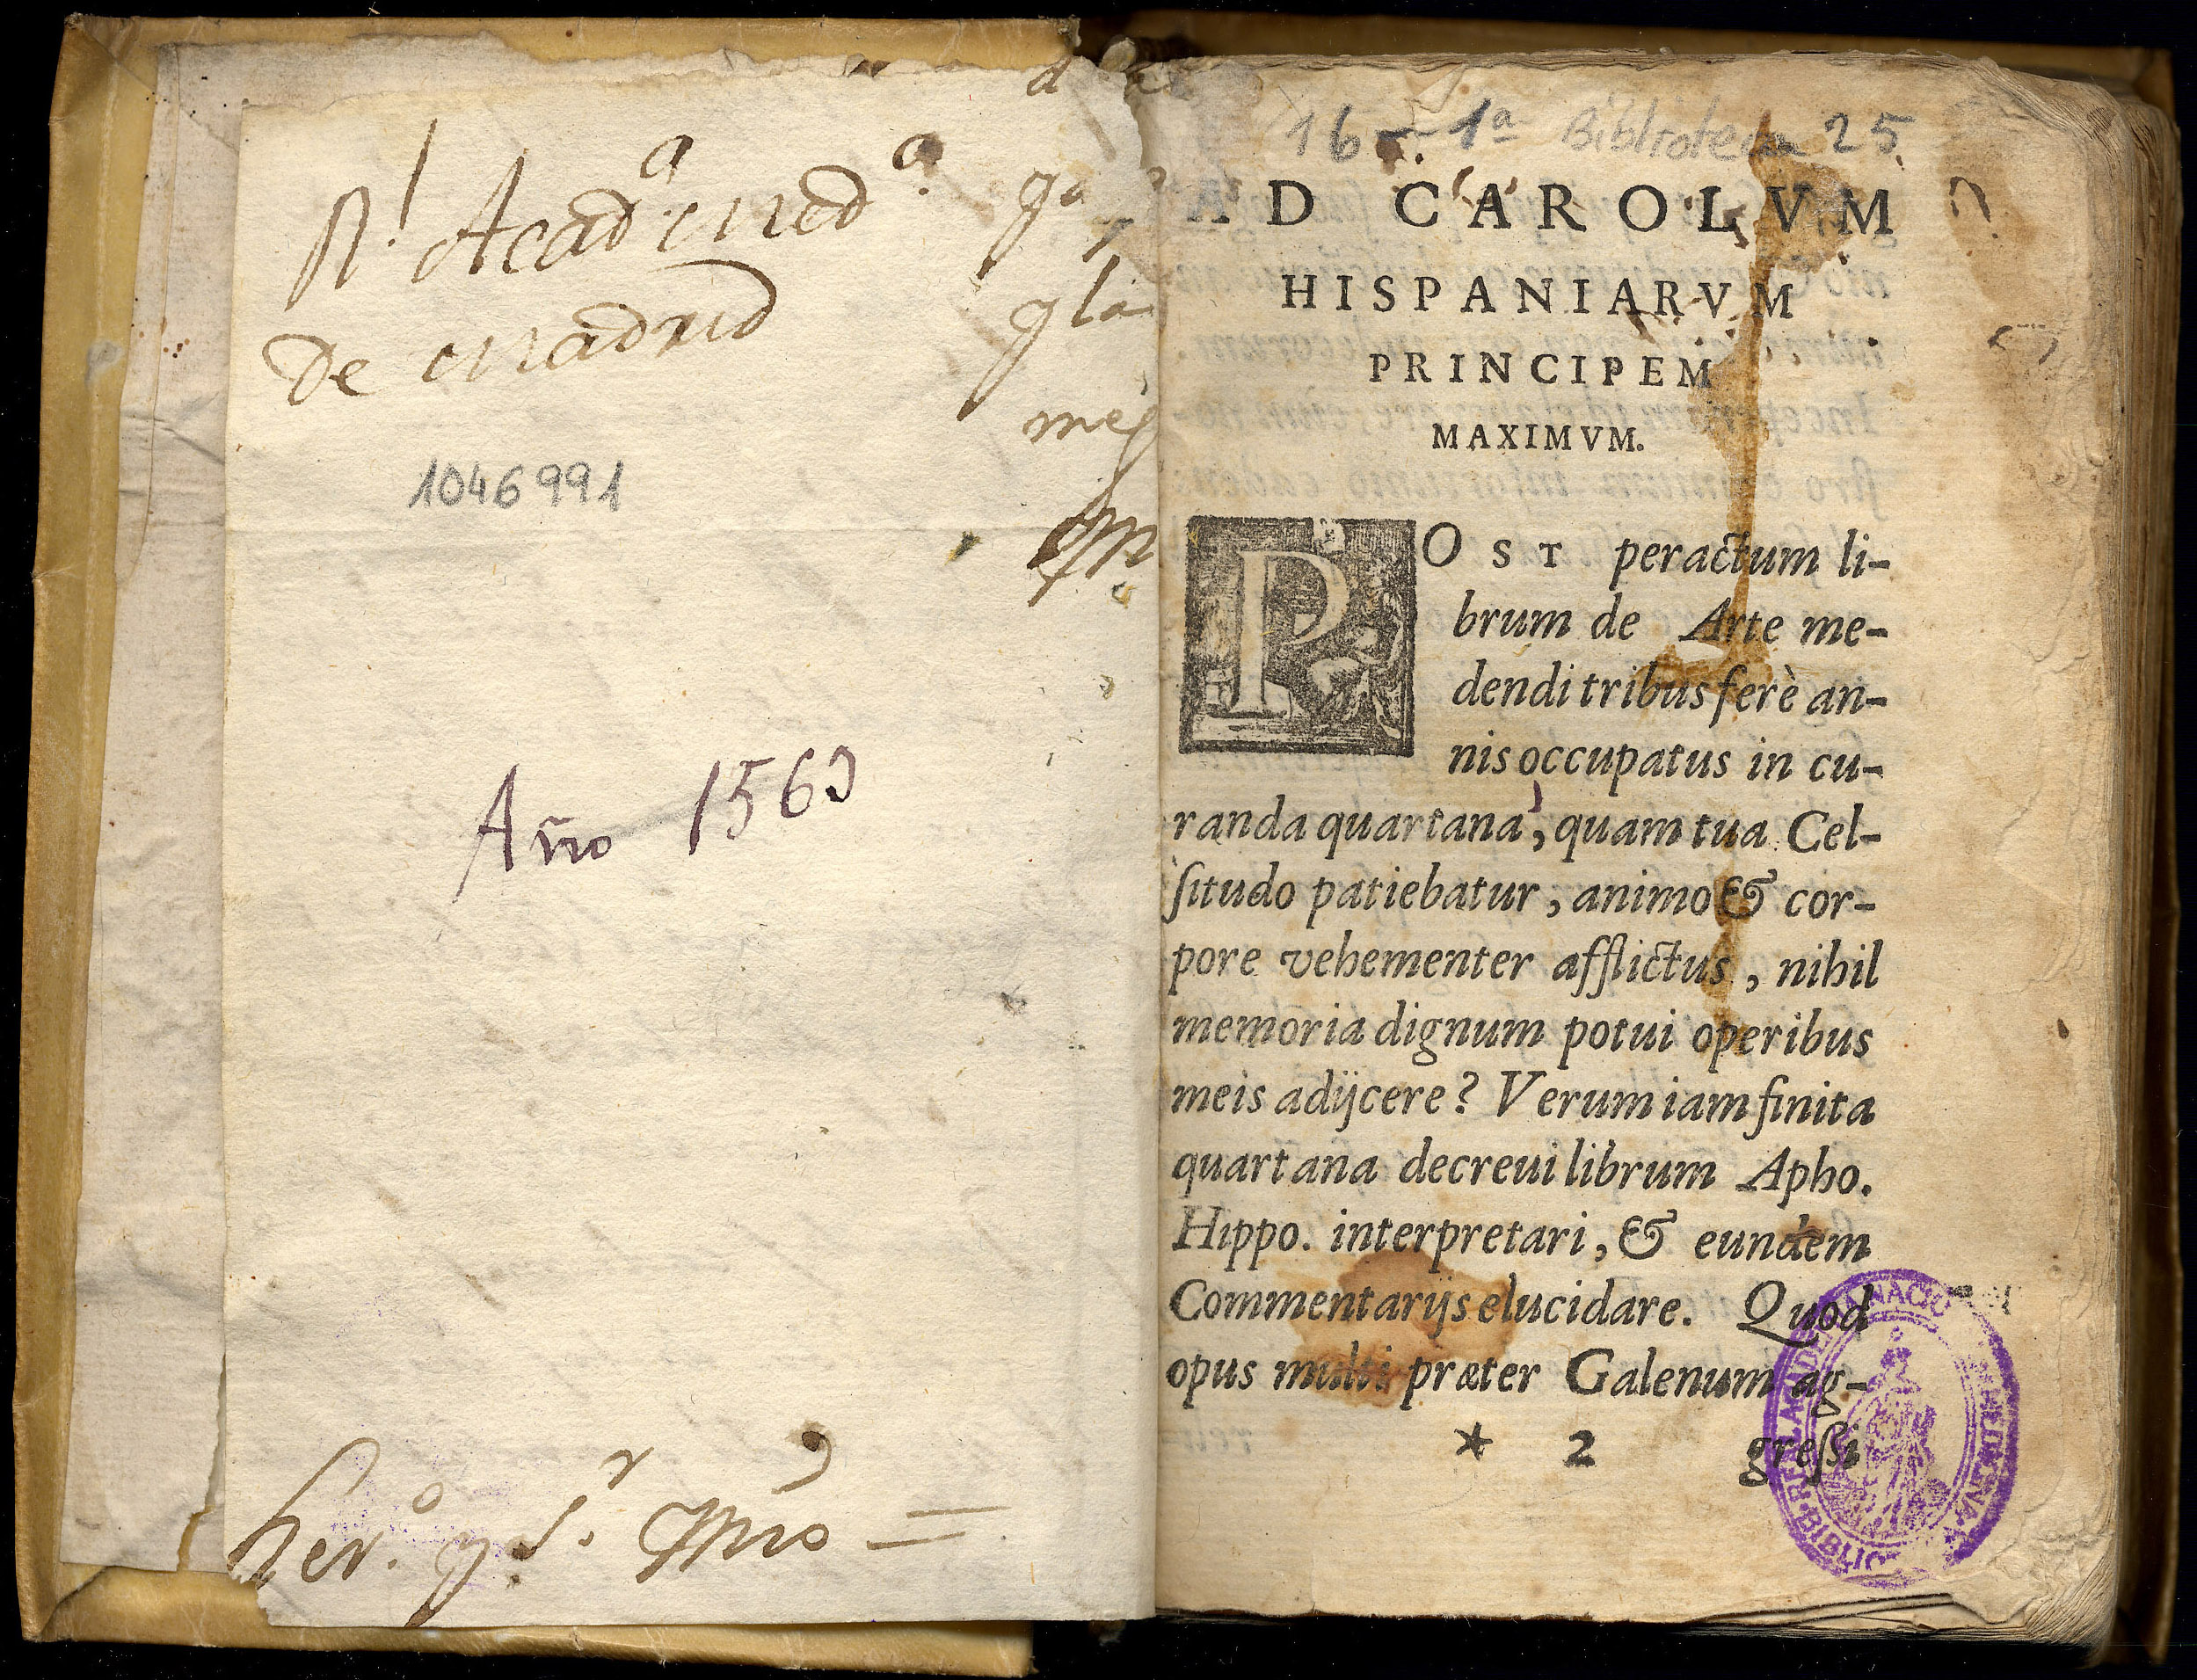 R.l Acad.a Med.a
de Madrid
1046991
Año 1563
her.o y s.r mio =
16 - 1a Biblioteca 25
AD CAROLVM
HISPANIARVM
PRINCIPEM
MAXIMVM.
POST peractum li-
brum de Arte me-
dendi tribus ferè an-
nis occupatus in cu-
randa quartana, quam tua Cel-
ſitudo patiebatur, animo & cor-
pore vehementer afflictus, nihil
memoria dignum potui operibus
meis adijcere? Verum iam finita
quartana decreui librum Apho.
Hippo. interpretari, & eundem
Commentarijs elucidare. Quod
opus multi præter Galenum ag-
* 2 greßi
REAL ACADEMIA NACIONAL DE MEDICINA
BIBLIOTECA